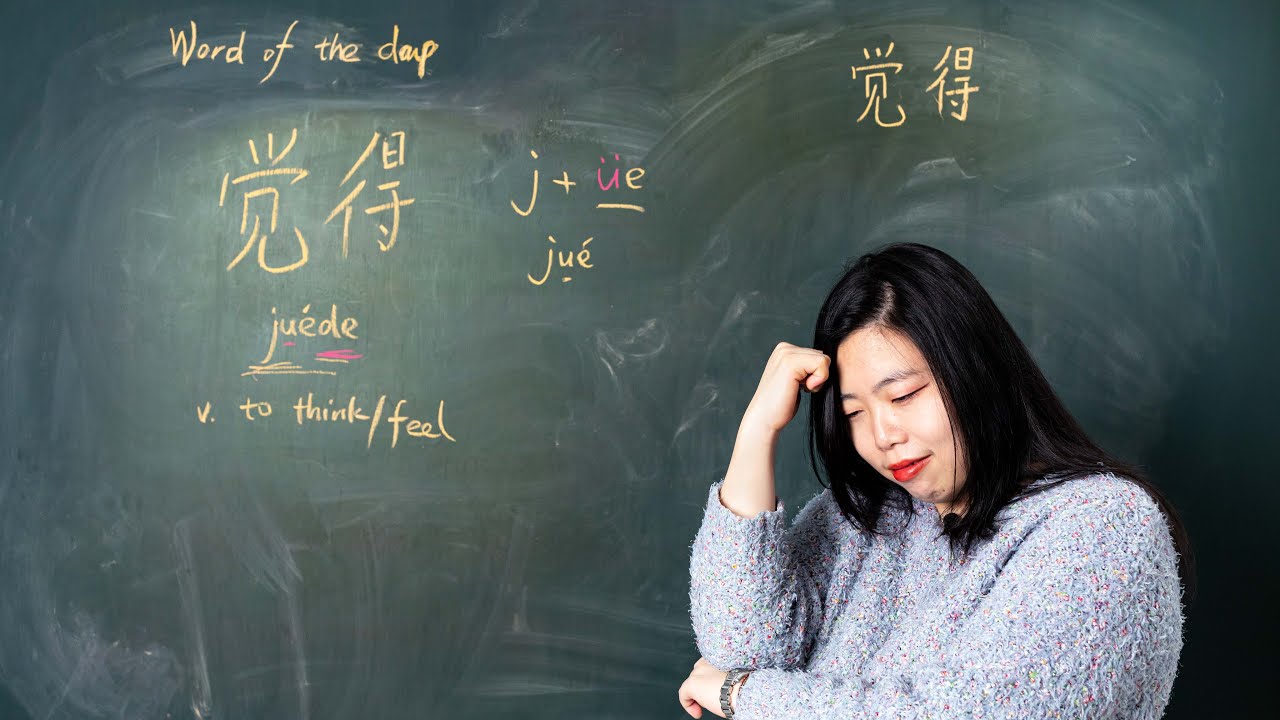 Word of the day
觉得
juéde
v. to think/feel
j + üe
jué
觉得